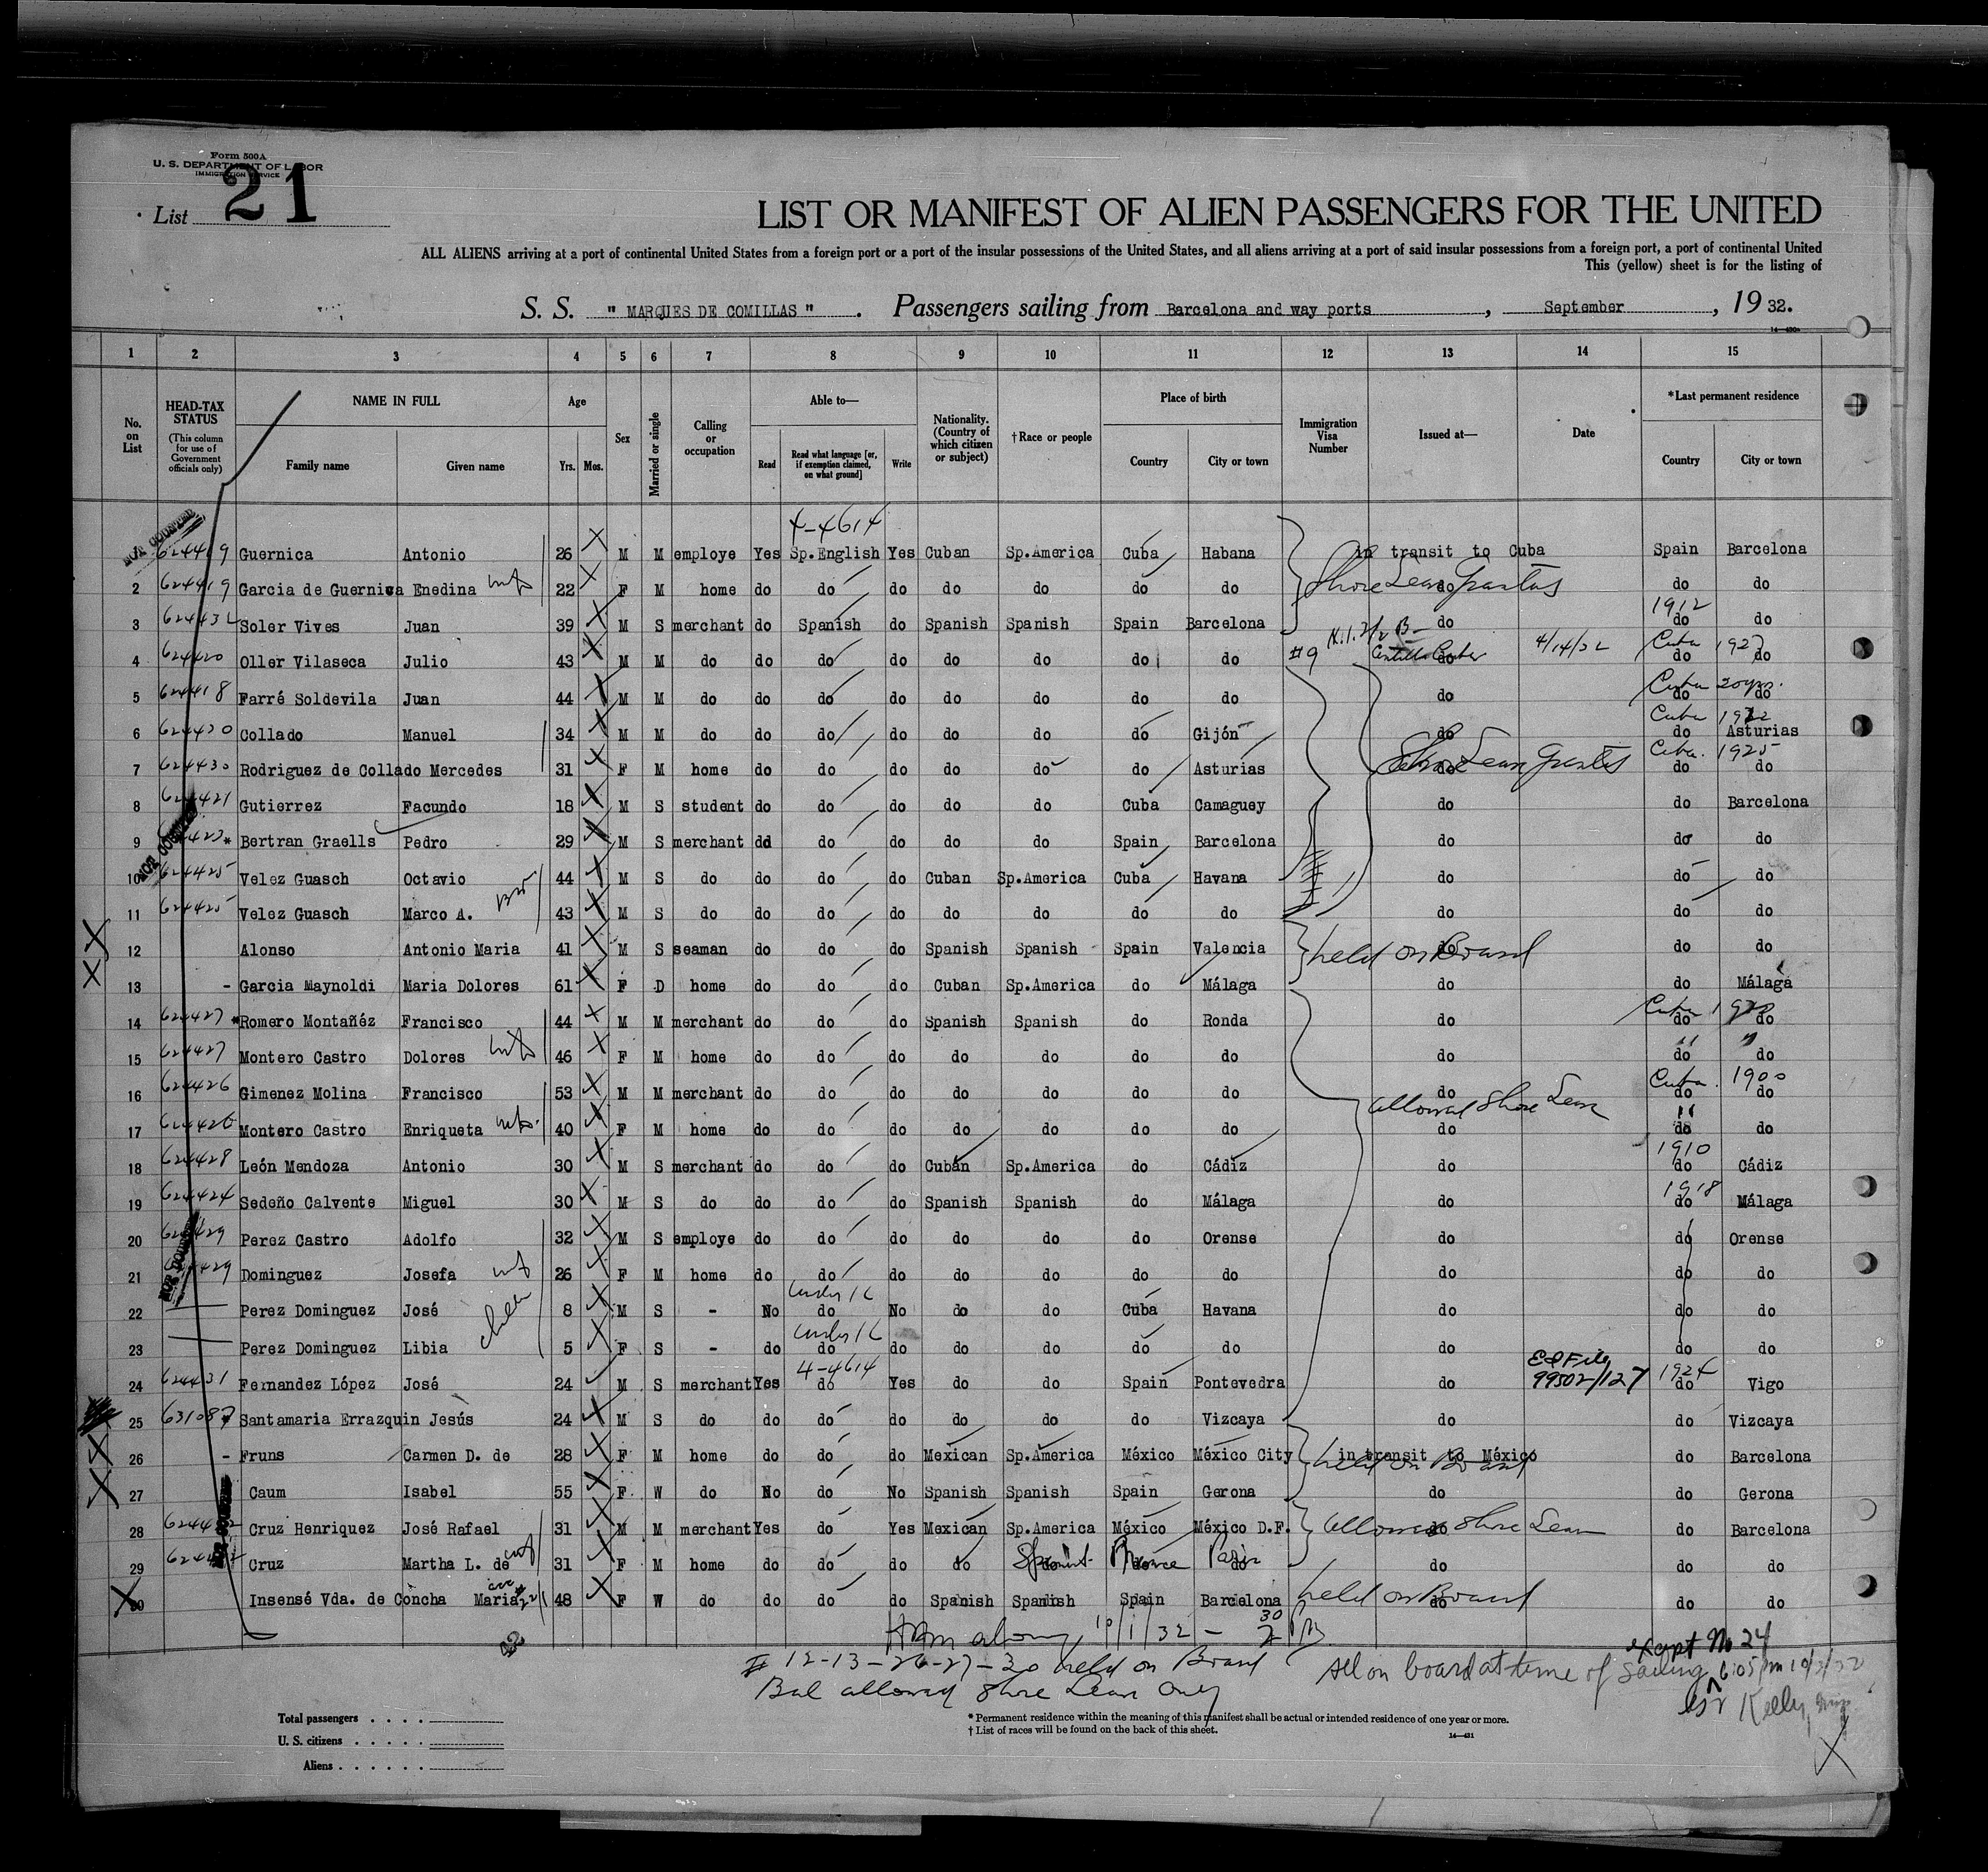 Form 500A
U. S. DEPARTMENT OF LABOR
IMMIGRATION SERVICE
List 21
LIST OR MANIFEST OF ALIEN PASSENGERS FOR THE UNITED
ALL ALIENS arriving at a port of continental United States from a foreign port or a port of the insular possessions of the United States, and all aliens arriving at a port of said insular possessions from a foreign port, a port of continental United
This (yellow) sheet is for the listing of
S. S. " MARQUES DE COMILLAS ". Passengers sailing from Barcelona and way ports, September, 1932.
1 2 3 4 5 6 7 8 9 10 11 12 13 14 15
No. on List
HEAD-TAX STATUS (This column for use of Government officials only)
NAME IN FULL Family name Given name
Age Yrs. Mos.
Sex
Married or single
Calling or occupation
Able to— Read Read what language [or, if exemption claimed, on what ground] Write
Nationality. (Country of which citizen or subject)
† Race or people
Place of birth Country City or town
Immigration Visa Number
Issued at—
Date
*Last permanent residence Country City or town
4-4614
NOT COUNTED
Guernica Antonio 26 M M employe Yes Sp.English Yes Cuban Sp.America Cuba Habana in transit to Cuba Spain Barcelona
2 624419 Garcia de Guernica Enedina 22 F M home do do do do do do do Shore Leave do do do
1912
3 624432 Soler Vives Juan 39 M S merchant do Spanish do Spanish Spanish Spain Barcelona do do do
4 624420 Oller Vilaseca Julio 43 M M do do do do do do do do #9 do 4/14/32 Cuba 1927 do do
5 624418 Farré Soldevila Juan 44 M M do do do do do do do do do Cuba 20yrs. do do
Cuba 1922
6 624430 Collado Manuel 34 M M do do do do do do do Gijón do do Asturias
Cuba. 1925
7 624430 Rodriguez de Collado Mercedes 31 F M home do do do do do do Asturias Shore Leave do do do
8 624421 Gutierrez Facundo 18 M S student do do do do do Cuba Camaguey do do Barcelona
9 * Bertran Graells Pedro 29 M S merchant do do do do do Spain Barcelona do do do
NOT COUNTED
10 624425 Velez Guasch Octavio 44 M S do do do do Cuban Sp.America Cuba Havana do do do
11 624425 Velez Guasch Marco A. 43 M S do do do do do do do do do do do
X 12 Alonso Antonio Maria 41 M S seaman do do do Spanish Spanish Spain Valencia held on Board do do do
X 13 - Garcia Maynoldi Maria Dolores 61 F D home do do do Cuban Sp.America do Málaga do do Málaga
14 624427 *Romero Montañéz Francisco 44 M M merchant do do do Spanish Spanish do Ronda do Cuba do do
15 624427 Montero Castro Dolores 46 F M home do do do do do do do do do do
Cuba. 1900
16 624426 Gimenez Molina Francisco 53 M M merchant do do do do do do do do do do
allowed Shore Leave
17 624426 Montero Castro Enriqueta 40 F M home do do do do do do do do do do
1910
18 624428 León Mendoza Antonio 30 M S merchant do do do Cuban Sp.America do Cádiz do do Cádiz
1918
19 624424 Sedeño Calvente Miguel 30 M S do do do do Spanish Spanish do Málaga do do Málaga
20 Perez Castro Adolfo 32 M S employe do do do do do do Orense do do Orense
NOT COUNTED
21 Dominguez Josefa 26 F M home do do do do do do do do do do
under 16
22 Perez Dominguez José 8 M S - No do No do do Cuba Havana do do do
under 16
23 Perez Dominguez Libia 5 F S - do do do do do do do do do do
4-4614
24 624431 Fernandez López José 24 M S merchant Yes do Yes do do Spain Pontevedra do 99502/127 1924 do Vigo
25 631087 Santamaria Errazquin Jesús 24 M S do do do do do do do Vizcaya do do Vizcaya
X 26 - Fruns Carmen D. de 28 F M home do do do Mexican Sp.America México México City in transit to México do Barcelona
held on Board
X 27 Caum Isabel 55 F W do No do No Spanish Spanish Spain Gerona do do Gerona
28 Cruz Henriquez José Rafael 31 M M merchant Yes do Yes Mexican Sp.America México México D.F. allowed Shore Leave do do Barcelona
29 Cruz Martha L. de 31 F M home do do do do do do do do do do
X 30 Insensé Vda. de Concha Maria 48 F W do do do do Spanish Spanish Spain Barcelona held on Board do do do
10/1/32 -
# 12-13-26-27-30 held on Board
Bal allowed Shore Leave Only
except No 24
All on board at time of sailing 6:05 pm
Kelly
Total passengers
U. S. citizens
Aliens
* Permanent residence within the meaning of this manifest shall be actual or intended residence of one year or more.
† List of races will be found on the back of this sheet.
14—431